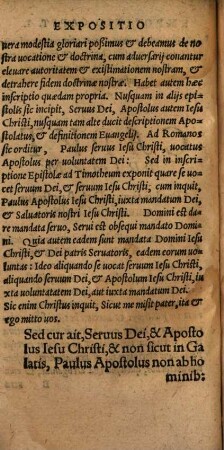 EXPOSITIO
uera modestia gloriari poßimus & debeamus de no
stra uocatione & doctrina, cum aduersarij conantur
eleuare autoritatem & existimationem nostram, &
detrahere fidem doctrinæ nostræ. Habet autem hæc
inscriptio quædam propria. Nusquam in alijs episto
lis sic incipit, Seruus Dei, Apostolus autem Iesu
Christi, nusquam tam alte ducit descriptionem Apo
stolatus, & definitionem Euangelij. Ad Romanos
sic orditur, Paulus seruus Iesu Christi, uocatus
Apostolus per uoluntatem Dei: Sed in inscri
ptione Epistolæ ad Timotheum exponit quare se uo
cet seruum Dei, & seruum Iesu Christi, cum inquit,
Paulus Apostolus Iesu Christi, iuxta mandatum Dei,
& Saluatoris nostri Iesu Christi. Domini est da
re mandata seruo, Serui est obsequi mandatis Do
mini. Quia autem eadem sunt mandata Domini Iesu
Christi, & Dei patris Seruatoris, eadem eorum uo
luntas: Ideo aliquando se uocat seruum Iesu Christi,
aliquando seruum Dei, & Apostolum Iesu Christi, iu
xta uoluntatem Dei, aut iuxta mandatum Dei.
Sic enim Christus inquit, Sicut me misit pater, ita &
ego mitto uos.
Sed cur ait, Seruus Dei, & Aposto
lus Iesu Christi, & non sicut in Ga
latis, Paulus Apostolus non ab ho
minib: